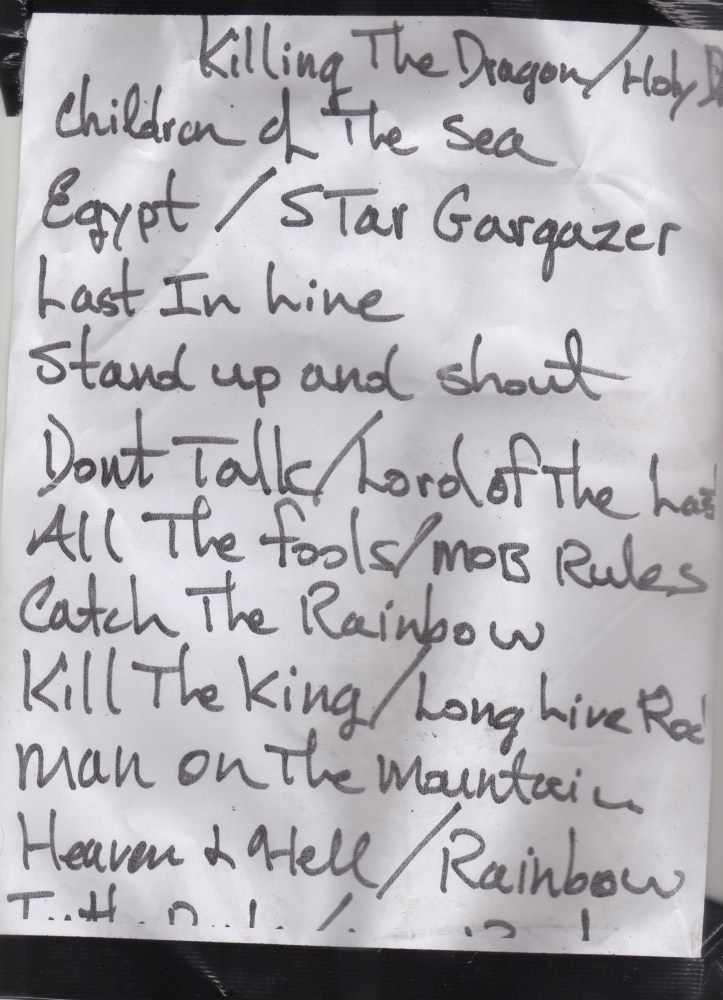 Killing The Dragon/Holy D
Children of The Sea
Egypt / STar Gargazer
Last In Line
Stand up and shout
Dont Talk/Lord of The Las
All The fools/MOB Rules
Catch The Rainbow
Kill The King/Long Live Roc
man on The mountain
Heaven & Hell/Rainbow